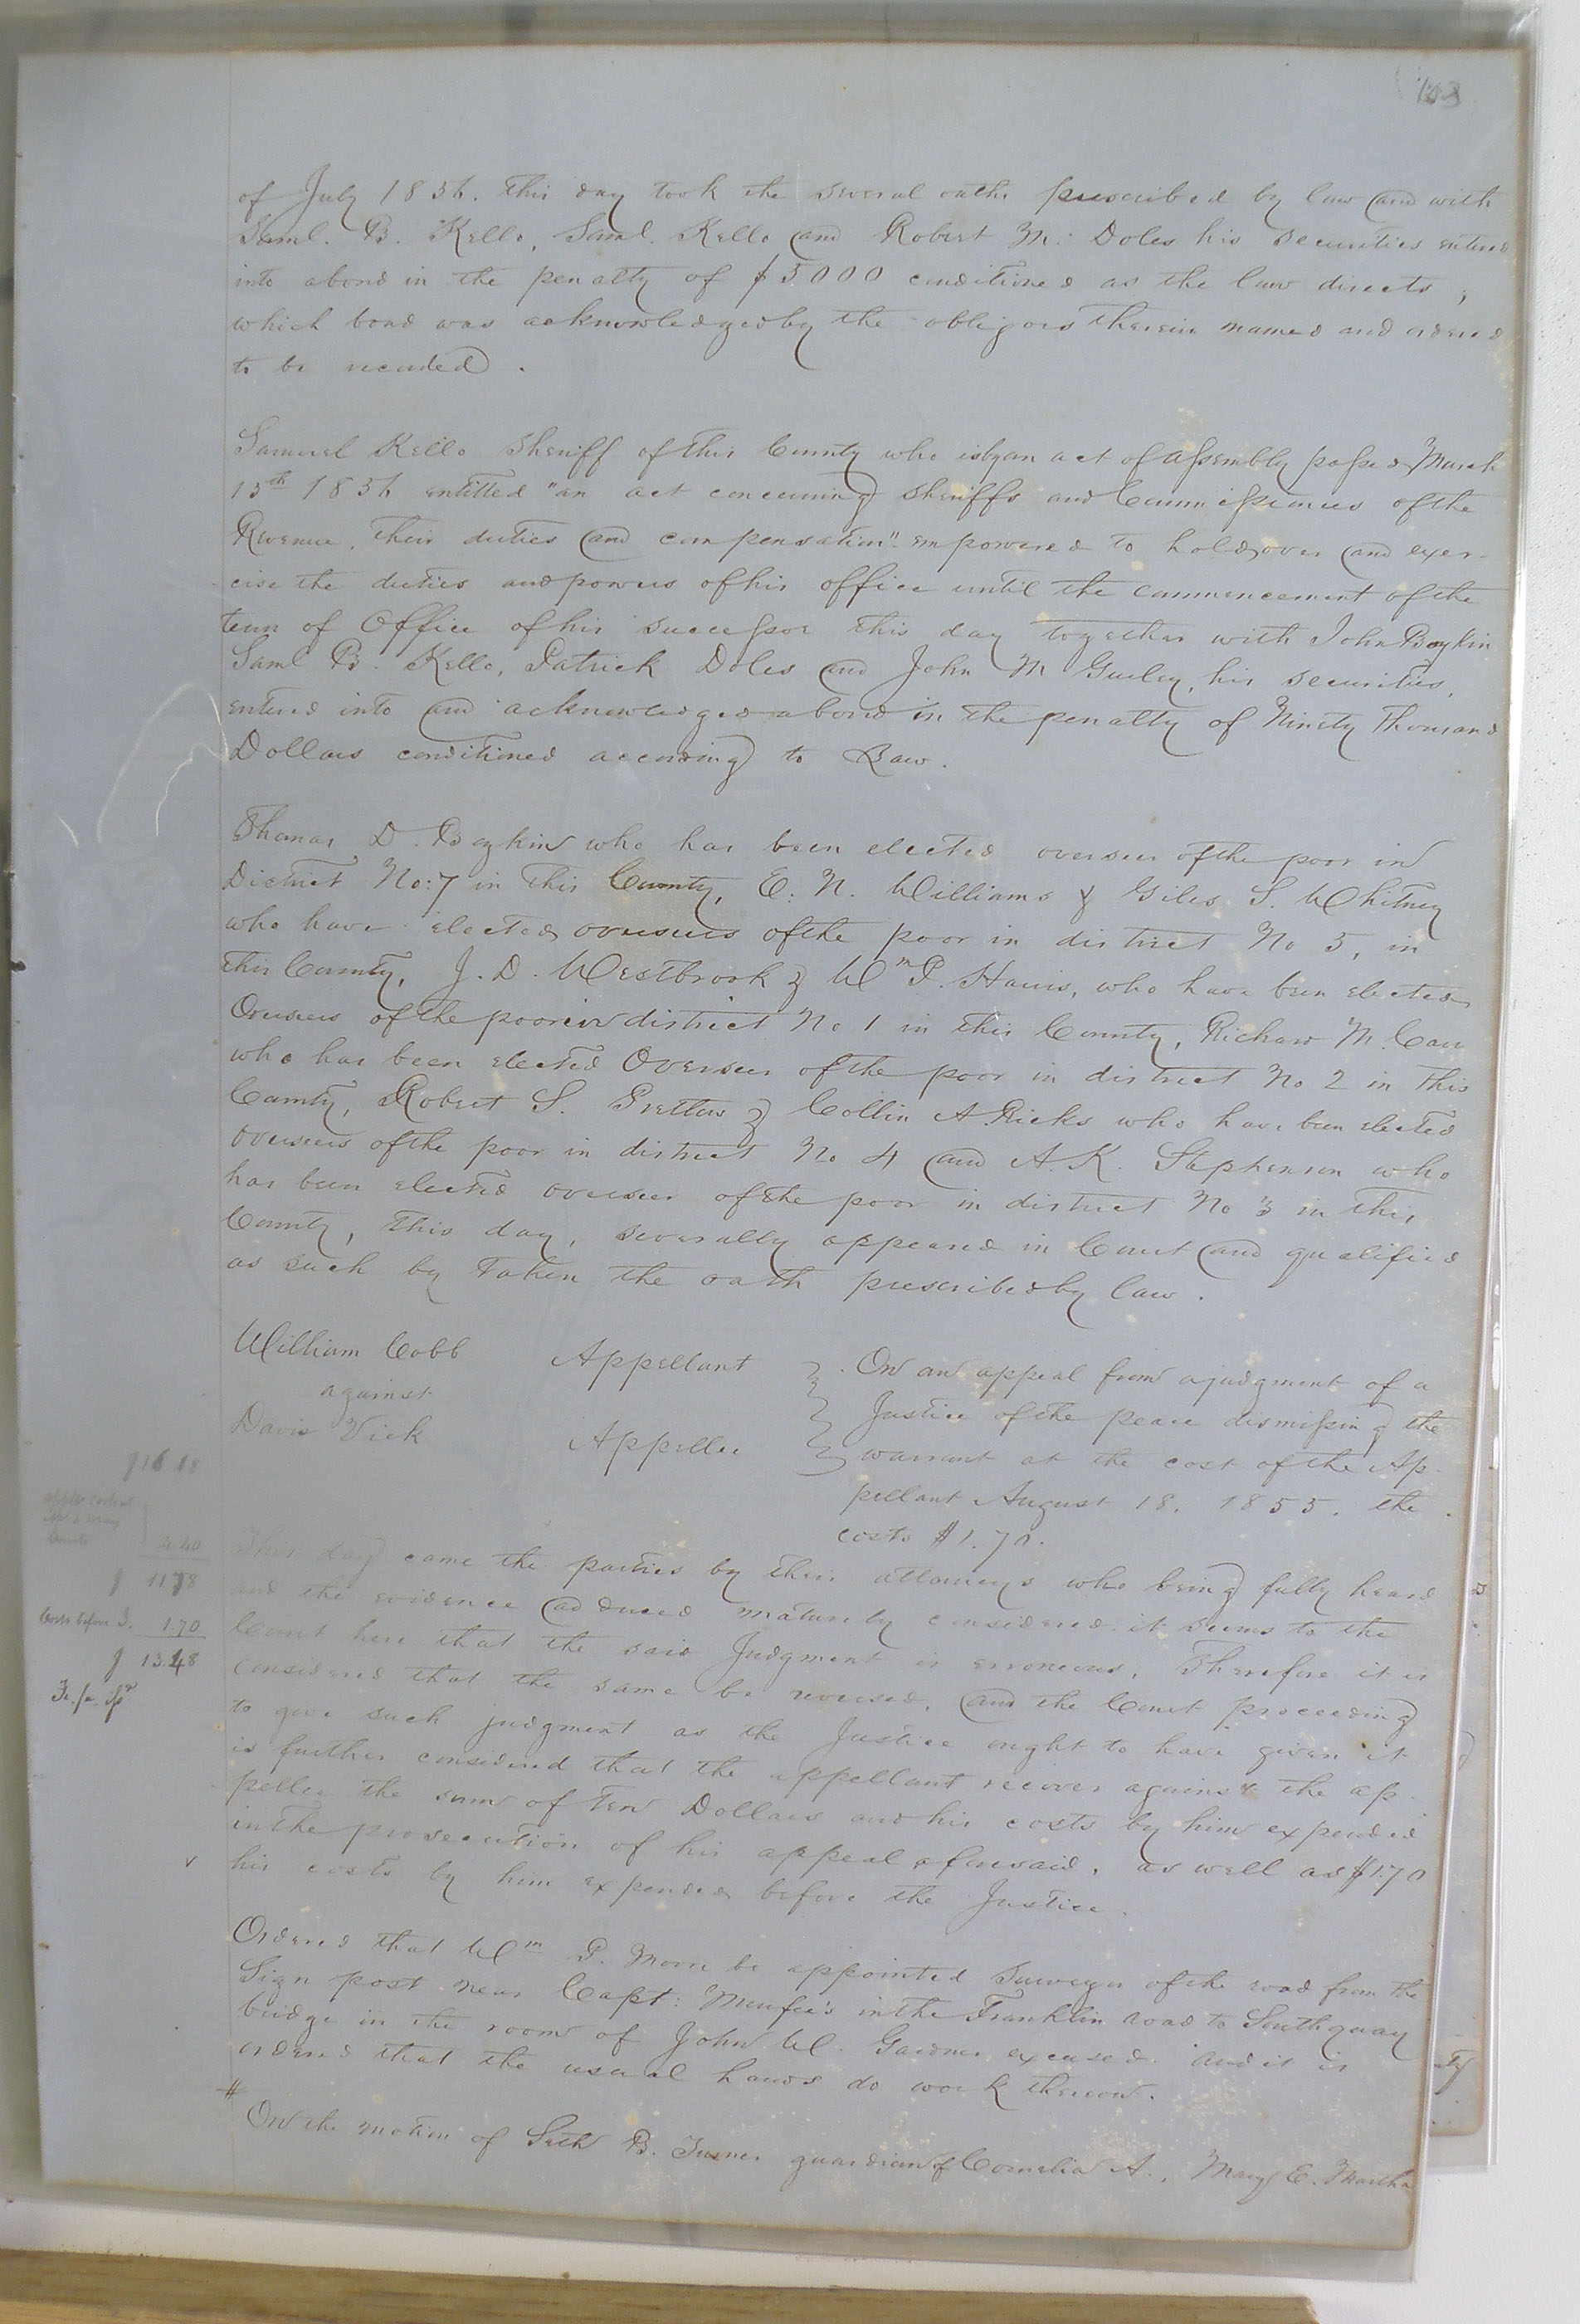 103
of July 1856. this day took the several oaths prescribed by law and with
Saml. B. Kello, Saml. Kello and Robert M. Doles his securities entered
into a bond in the penalty of $5000 conditioned as the law directs,
which bond was acknowledged by the obligors therein named and ordered
to be recorded.
Samuel Kello Sheriff of this County who is by an act of assembly passed March
15th 1856 entitled "an act concerning sheriffs and Commissioners of the
Revenue, their duties and compensation" empowered to hold over and exer-
cise the duties and powers of his office until the commencement of the
term of Office of his successor this day together with John Boykin
Saml B. Kello, Patrick Doles and John M Gurley, his securities,
entered into and acknowledged a bond in the penalty of Ninety Thousand
Dollars conditioned according to Law.
Thomas D. Boykin who has been elected overseer of the poor in
District No: 7 in this County, E. N. Williams & Giles S. Whitney
who have elected overseers of the poor in district No 5, in
this County, J. D. Westbrook & Wm P. Harris, who have been elected
Overseers of the poor in district No 1 in this County, Richard M. Carr
who has been elected Overseer of the poor in district No 2 in this
County, Robert S. Pretlow & Collin A Ricks who have been elected
overseers of the poor in district No 4 and A. K. Stephenson who
has been elected overseer of the poor in district No 3 in this
County, this day, severally appeared in Court and qualified
as such by taken the oath prescribed by law.
William Cobb Appellant
against
Davis Vick Appellee
On an appeal from a judgment of a
Justice of the peace dismissing the
warrant at the cost of the Ap-
pellant August 18, 1855. the
costs $1.70.
This day came the parties by their attorneys who being fully heard
and the evidence adduced maturely considered it seems to the
Court here that the said Judgment is erroneous, Therefore it is
considered that the same be reversed, and the Court proceeding
to give such judgment as the Justice ought to have given it
is further considered that the appellant recover against the ap-
pellee the sum of ten Dollars and his costs by him expended
in the prosecution of his appeal aforesaid, as well as $1.70
his costs by him expended before the Justice.
4.40
11.78
Costs before J. 1.70
$ 13.48
Ordered that Wm P. Moore be appointed Surveyor of the road from the
Sign post near Capt: Menfee's in the Franklin road to Southquay
bridge in the room of John W. Gardner excused. And it is
ordered that the usual hands do work thereon.
#
On the motion of Seth B. Turner guardian of Cornelia A., Mary E. Martha